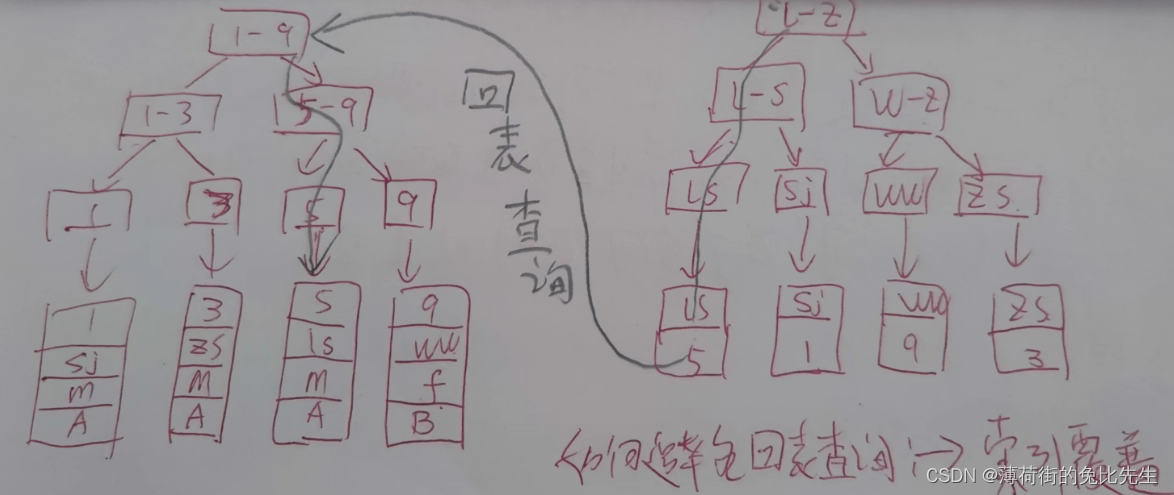 1-9
1-3
5-9
1
3
5
9
1
sj
m
A
3
zs
M
A
5
ls
m
A
9
ww
f
B
回表查询
L-Z
L-S
W-Z
LS
Sj
ww
ZS
LS
5
Sj
1
ww
9
ZS
3
如何避免回表查询:→索引覆盖
CSDN @薄荷街的兔比先生